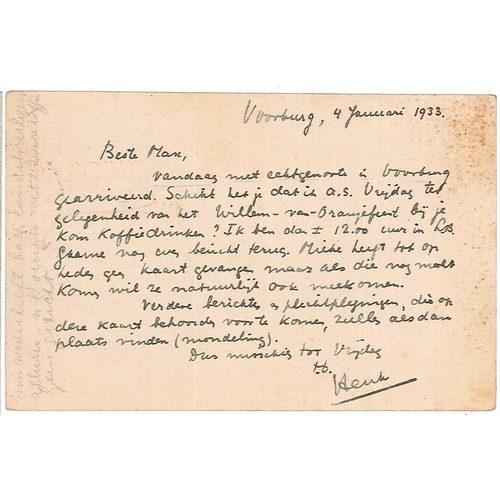 Voorburg, 4 Januari 1933.
Beste Max,
Vandaag met echtgenoote in Voorburg
gearriveerd. Schikt het je dat ik a.s. Vrijdag ter
gelegenheid van het Willem-van-Oranjefeest bij je
kom koffiedrinken? Ik ben dan ± 12.00 uur in
Gaarne nog even bericht terug. Mieke heeft tot op
heden geen kaart gevangen maar als die nog mocht
komen wil ze natuurlijk ook meekomen.
Verdere berichten en plichtplegingen, die op
deze kaart behooren voor te komen, zullen alsdan
plaats vinden (mondeling).
Dus misschien tot Vrijdag
t.t.
Henk